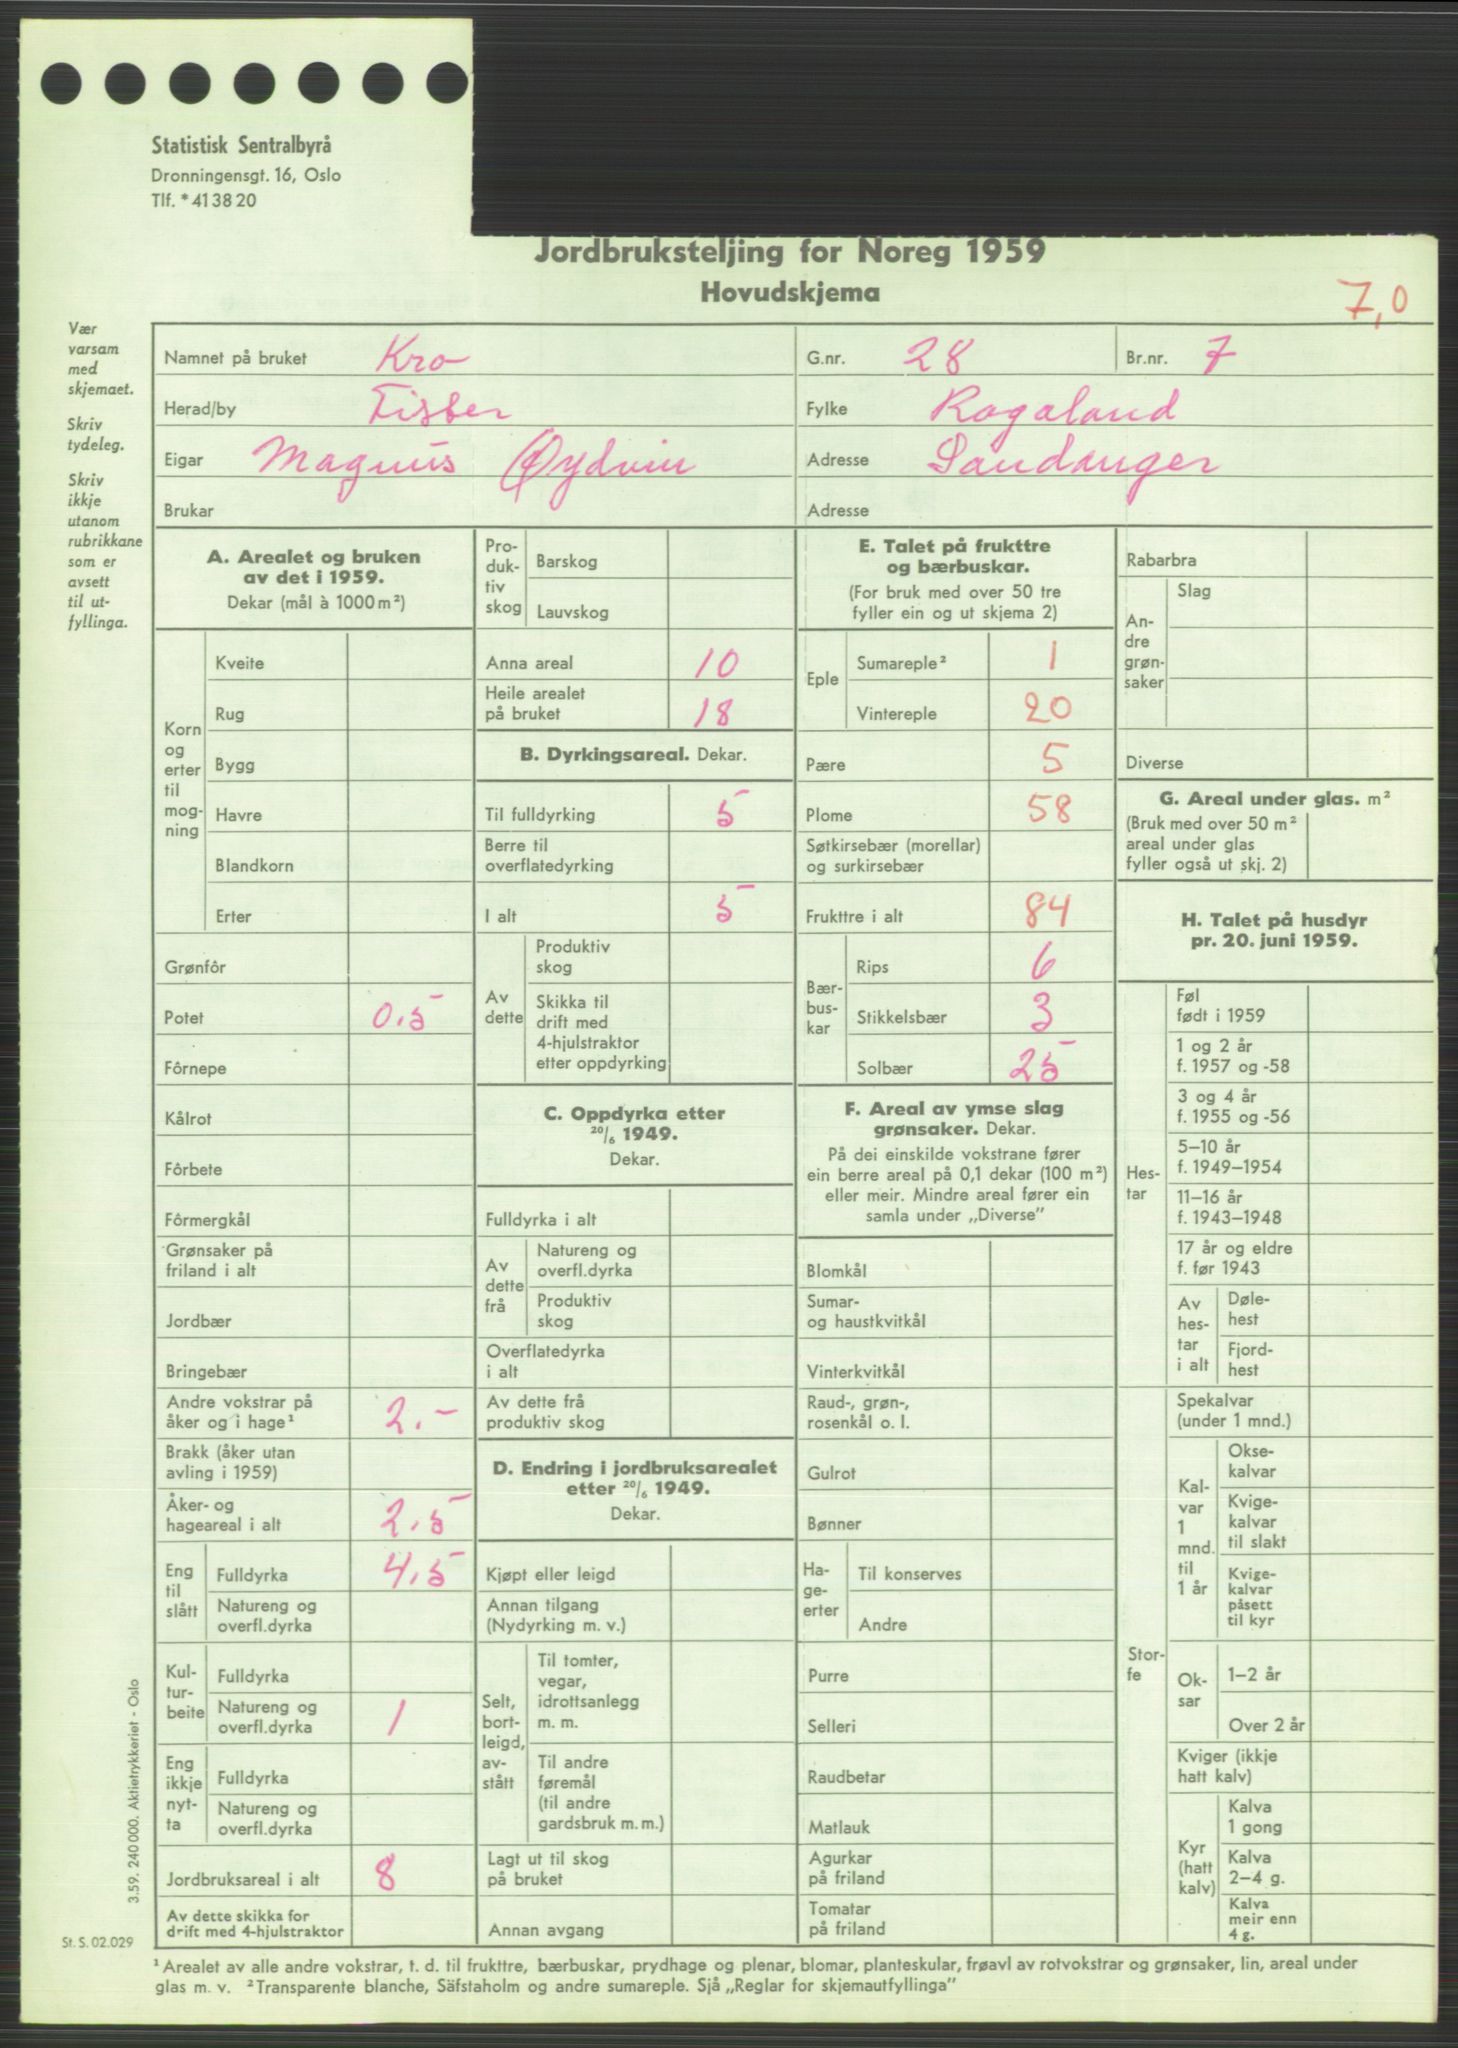 Statistisk Sentralbyrå
Dronningensgt. 16, Oslo
Tlf. * 41 38 20
Jordbruksteljing for Noreg 1959
Hovudskjema
7,0
Vær
varsam
med
skjemaet.
Skriv
tydeleg.
Skriv
ikkje
utanom
rubrikkane
som er
avsett
til ut-
fyllinga.
Namnet på bruket Kro G.nr. 28 Br.nr. 7
Herad/by Fister Fylke Rogaland
Eigar Magnus Øydvin Adresse Sandanger
Brukar Adresse
A. Arealet og bruken
av det i 1959.
Dekar (mål à 1000 m²)
Korn
og
erter
til
mog-
ning
Kveite
Rug
Bygg
Havre
Blandkorn
Erter
Grønfôr
Potet 0.5
Fôrnepe
Kålrot
Fôrbete
Fôrmergkål
Grønsaker på
friland i alt
Jordbær
Bringebær
Andre vokstrar på
åker og i hage¹ 2.-
Brakk (åker utan
avling i 1959)
Åker- og
hageareal i alt 2.5
Eng
til
slått
Fulldyrka 4.5
Natureng og
overfl.dyrka
Kul-
tur-
beite
Fulldyrka
Natureng og
overfl.dyrka 1
Eng
ikkje
nyt-
ta
Fulldyrka
Natureng og
overfl.dyrka
Jordbruksareal i alt 8
Av dette skikka for
drift med 4-hjulstraktor
Pro-
duk-
tiv
skog
Barskog
Lauvskog
Anna areal 10
Heile arealet
på bruket 18
B. Dyrkingsareal. Dekar.
Til fulldyrking 5
Berre til
overflatedyrking
I alt 5
Av
dette
Produktiv
skog
Skikka til
drift med
4-hjulstraktor
etter oppdyrking
C. Oppdyrka etter
20/6 1949.
Dekar.
Fulldyrka i alt
Av
dette
frå
Natureng og
overfl.dyrka
Produktiv
skog
Overflatedyrka
i alt
Av dette frå
produktiv skog
D. Endring i jordbruksarealet
etter 20/6 1949.
Dekar.
Kjøpt eller leigd
Annan tilgang
(Nydyrking m. v.)
Selt,
bort-
leigd,
av-
stått
Til tomter,
vegar,
idrottsanlegg
m. m.
Til andre
føremål
(til andre
gardsbruk m. m.)
Lagt ut til skog
på bruket
Annan avgang
E. Talet på frukttre
og bærbuskar.
(For bruk med over 50 tre
fyller ein og ut skjema 2)
Eple
Sumareple² 1
Vintereple 20
Pære 5
Plome 58
Søtkirsebær (morellar)
og surkirsebær
Frukttre i alt 84
Bær-
bus-
kar
Rips 6
Stikkelsbær 3
Solbær 25
F. Areal av ymse slag
grønsaker. Dekar.
På dei einskilde vokstrane fører
ein berre areal på 0,1 dekar (100 m²)
eller meir. Mindre areal fører ein
samla under „Diverse"
Blomkål
Sumar-
og haustkvitkål
Vinterkvitkål
Raud-, grøn-,
rosenkål o. l.
Gulrot
Bønner
Ha-
ge-
erter
Til konserves
Andre
Purre
Selleri
Raudbetar
Matlauk
Agurkar
på friland
Tomatar
på friland
Rabarbra
An-
dre
grøn-
saker
Slag
Diverse
G. Areal under glas. m²
(Bruk med over 50 m²
areal under glas
fyller også ut skj. 2)
H. Talet på husdyr
pr. 20. juni 1959.
Hes-
tar
Føl
født i 1959
1 og 2 år
f. 1957 og -58
3 og 4 år
f. 1955 og -56
5–10 år
f. 1949–1954
11–16 år
f. 1943–1948
17 år og eldre
f. før 1943
Av
hes-
tar
i alt
Døle-
hest
Fjord-
hest
Stor-
fe
Spekalvar
(under 1 mnd.)
Kal-
var
1
mnd.
til
1 år
Okse-
kalvar
Kvige-
kalvar
til slakt
Kvige-
kalvar
påsett
til kyr
Ok-
sar
1–2 år
Over 2 år
Kviger (ikkje
hatt kalv)
Kyr
(hatt
kalv)
Kalva
1 gong
Kalva
2–4 g.
Kalva
meir enn
4 g.
3.59. 240 000. Aktietrykkeriet - Oslo
St. S. 02.029
¹ Arealet av alle andre vokstrar, t. d. til frukttre, bærbuskar, prydhage og plenar, blomar, planteskular, frøavl av rotvokstrar og grønsaker, lin, areal under
glas m. v. ² Transparente blanche, Säfstaholm og andre sumareple. Sjå „Reglar for skjemautfyllinga"